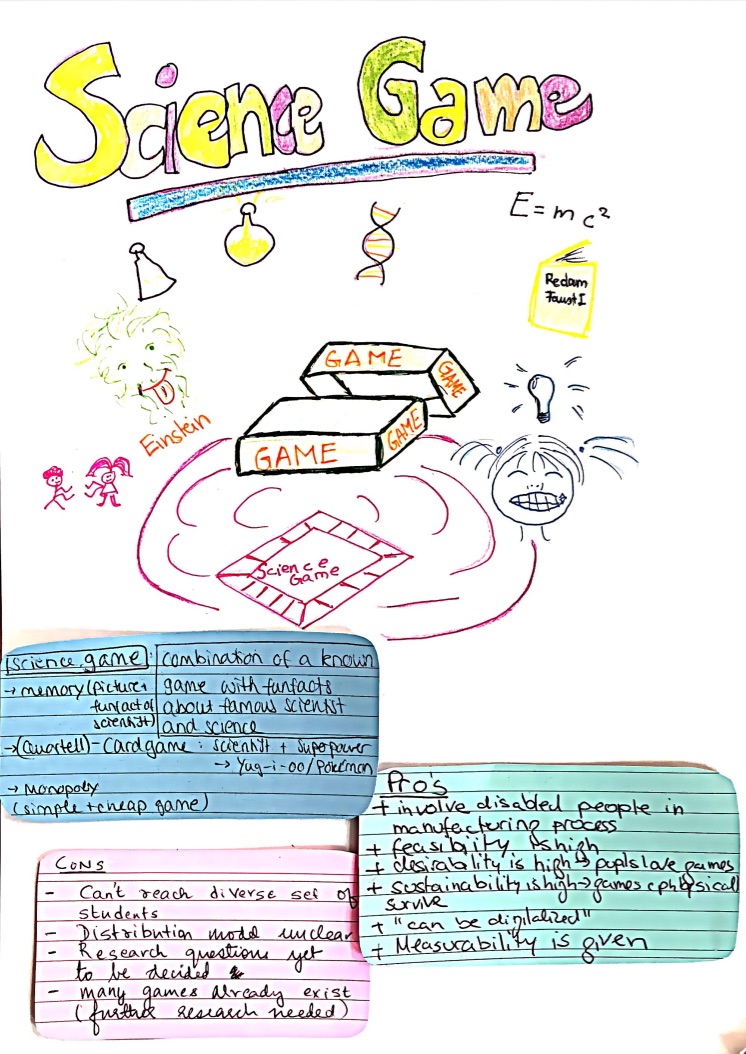 Science Game
E = mc²
Reclam
Faust I
GAME
GAME
GAME
GAME
Einstein
Science
Game
science game: combination of a known
→ memory (picture + game with funfacts
funfact of about famous scientist
scientist) and science
→ (Quartett) - Cardgame : scientist + superpower
→ Yug-i-oo/Pokémon
→ Monopoly
(simple + cheap game)
Pro's
+ involve disabled people in
manufacturing process
+ feasibility is high
+ desirability is high → pupils love games
+ sustainability is high → games physical
survive
+ "can be digitalized"
+ Measurability is given
CONS
- Can't reach diverse set of
students
- Distribution model unclear
- Research questions yet
to be decided
- many games already exist
(further research needed)